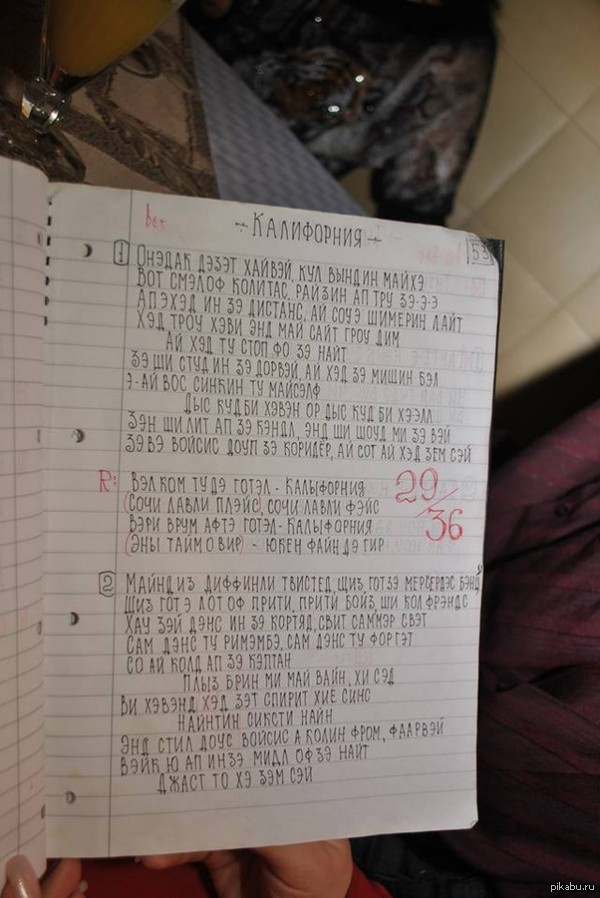 53
- Калифорния -
1 Онэдак дэзэт хайвэй, кул выndин майхэ
Вот смэлоф колитас, райзин ап тру зэ-э-э
Ап эхэд ин зэ дистанс, ай соуэ шимерин лайт
Хэд гроу хэви энд май сайт гроу дим
Ай хэд ту стоп фо зэ найт
Зэ ши студ ин зэ дорвэй, ай хэд зэ мишин бэл
Э-ай вос синкин ту майсэлф
Дыс куд би хэвэн ор дыс куд би хээлл
Зэн ши лит ап зэ кэндл, энд ши шоуд ми зэ вэй
Зэ вэ войсис доун зэ коридёр, ай сот ай хэд зем сэй
R: Вэлком ту дэ готэл - Калыфорния
(Сочи лавли плэйс), сочи лавли фэйс
Вэри врум афтэ готэл - Калыфорния
(Эны тайм о вир) - юкен файн дэ гир
29/36
2 Майнд из диффинли твистед, щиз готзэ мерсердэс бэнц
Щиз гот э лот оф прити, прити бойз, ши кол фрэндс
Хау зэй дэнс ин зэ кортяд, свит саммэр свэт
Сам дэнс ту римэмбэ, сам дэнс ту форгэт
Со ай колд ап зэ кэптан
Плыз брин ми май вайн, хи сэд
Ви хэвэнд хэд зэт спирит хие синс
найнтин сиксти найн
Энд стил доус войсис а колин фром, фаарвэй
Вэйк ю ап инзэ мидл оф зэ найт
Джаст то хэ зэм сэй
pikabu.ru